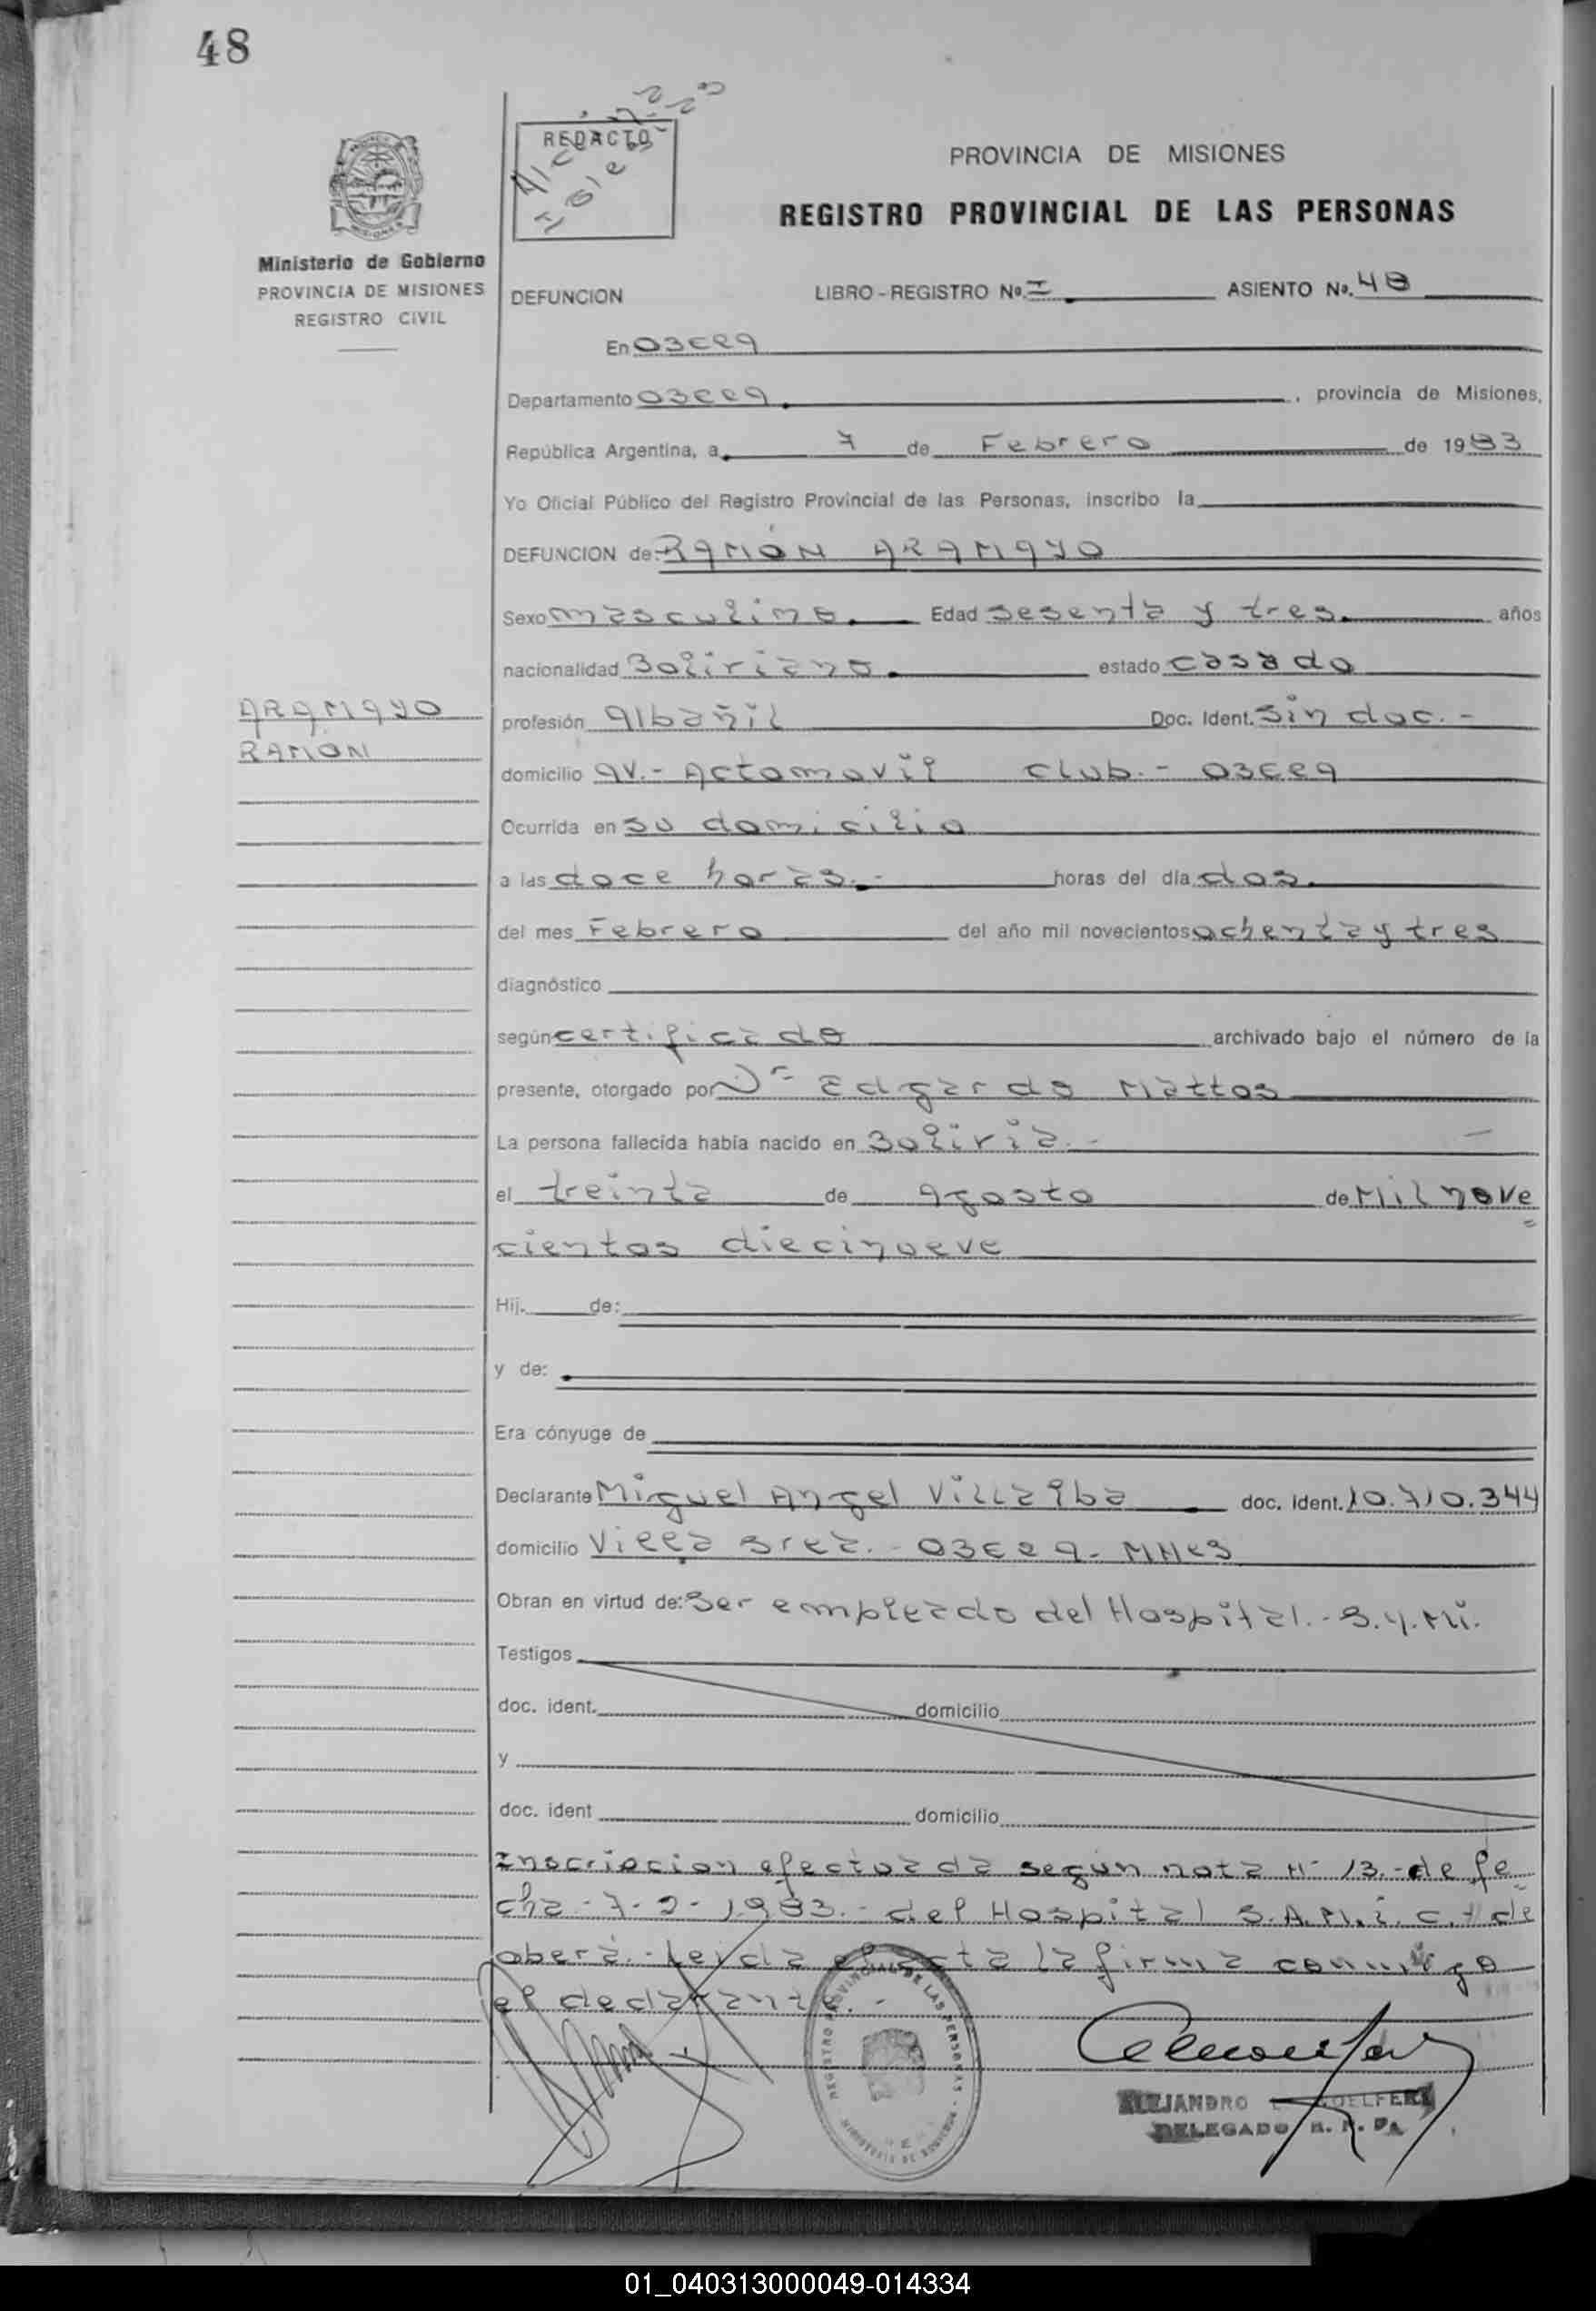 48
REDACTO
PROVINCIA DE MISIONES
REGISTRO PROVINCIAL DE LAS PERSONAS
Ministerio de Gobierno
PROVINCIA DE MISIONES
REGISTRO CIVIL
DEFUNCION LIBRO-REGISTRO Nº. I ASIENTO Nº. 48
En OBERA
Departamento OBERA, provincia de Misiones,
República Argentina, a 7 de Febrero de 1983
Yo Oficial Público del Registro Provincial de las Personas, inscribo la
DEFUNCION de: RAMÓN ARAMAYO
Sexo masculino. Edad sesenta y tres. años
nacionalidad Boliviano. estado casado
ARAMAYO
RAMÓN
profesión Albañil Doc. Ident. Sin doc. -
domicilio AV.- Actomovil Club.- OBERA
Ocurrida en su domicilio
a las doce horas.- horas del día dos.
del mes Febrero del año mil novecientos ochenta y tres
diagnóstico
según certificado archivado bajo el número de la
presente, otorgado por Dr Edgardo Mattos
La persona fallecida había nacido en Bolivia.-
el treinta de Agosto de Mil nove
cientos diecinueve
Hij. de:
y de:
Era cónyuge de
Declarante Miguel Angel Villalba doc. ident. 10.710.344
domicilio Villa - OBERA-
Obran en virtud de: Ser empleado del Hospital.-
Testigos
doc. ident. domicilio
y
doc. ident domicilio
Inscripcion efectuada según nota Nº 13.- de fe
cha - 7-2-1983.- del Hospital S.A.M.i. c. de
oberá.- Leida el acta la firma conmigo
el declarante.-
REGISTRO PROVINCIAL DE LAS PERSONAS
ALEJANDRO
DELEGADO R. P. P.
01_040313000049-014334